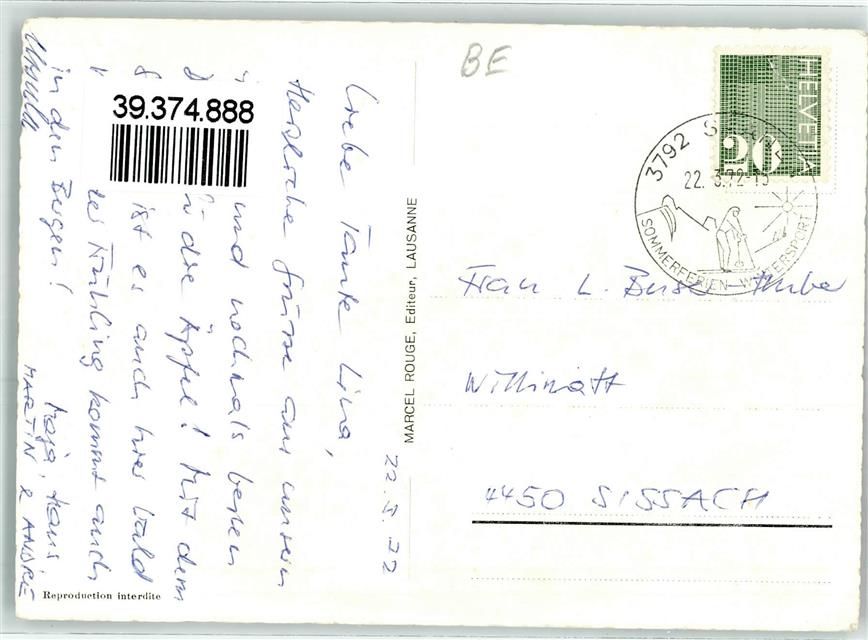 BE
HELVETIA
20
3792 SAANEN
22. 3.72-15
SOMMERFERIEN - WINTERSPORT
39.374.888
22.3.72
Liebe Tante Lina,
Herzliche Grüsse aus unsern
und nochmals besten
die Äpfel! Mit dem
ist es auch hier bald
der Frühling kommt auch
in den Bergen!
Maja, Hans,
MARTIN & ANDRÉ
Ursula
MARCEL ROUGE, Editeur, LAUSANNE
Frau L. Buser-Huber
Willimatt
4450 SISSACH
Reproduction interdite